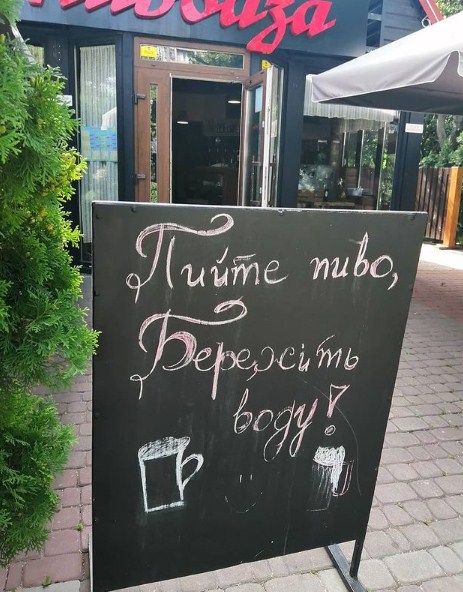 Пийте пиво,
Бережіть
воду!